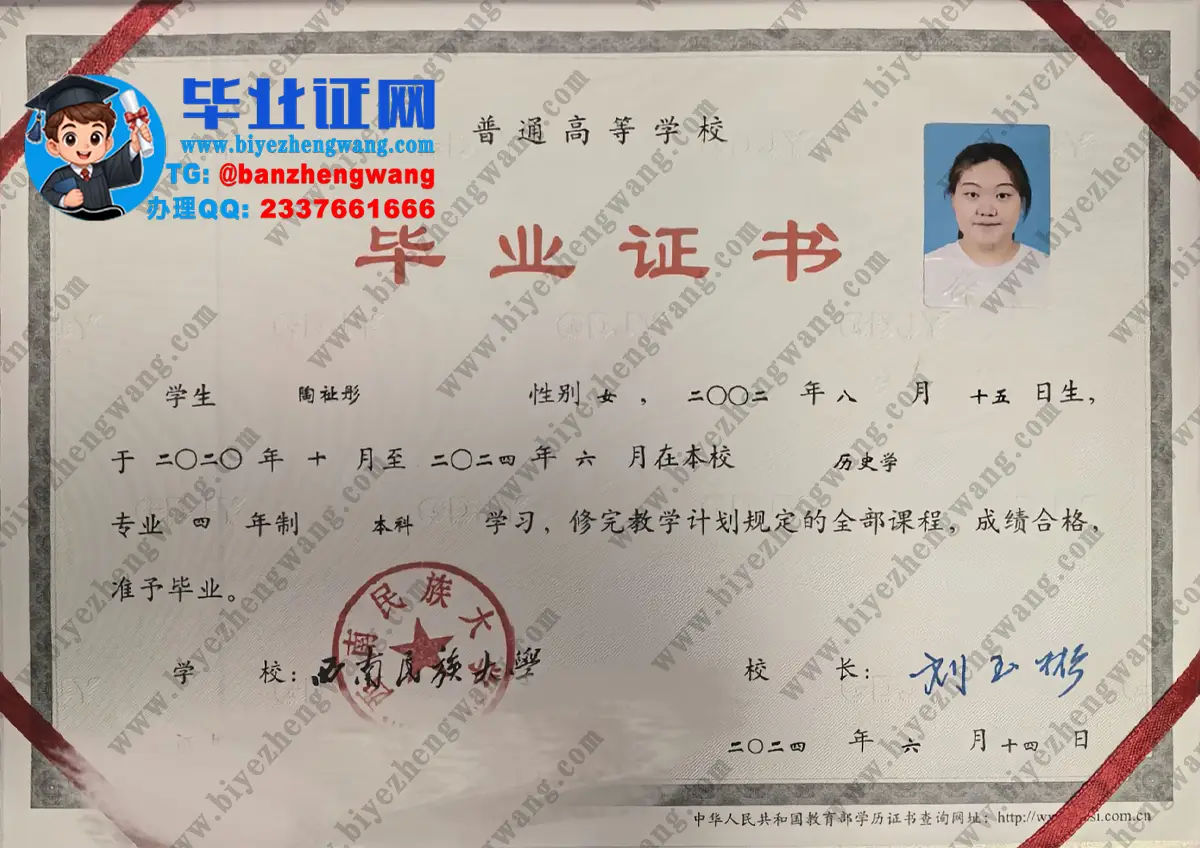 毕业证网
www.biyezhengwang.com
TG: @banzhengwang
办理QQ: 2337661666
普通高等学校
毕业证书
学生 陶祉彤 性别 女 ， 二〇〇二 年 八 月 十五 日生，
于 二〇二〇 年 十 月至 二〇二四 年 六 月在本校 历史学
专业 四 年制 本科 学习，修完教学计划规定的全部课程，成绩合格，
准予毕业。
西南民族大
学 校：西南民族大學 校 长：刘玉彬
二〇二四 年 六 月 十四 日
中华人民共和国教育部学历证书查询网址：http://w si.com.cn
www.biyezhengwang.com